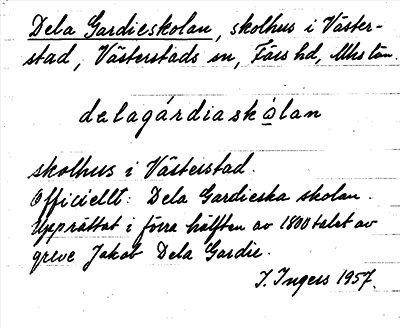 Dela Gardieskolan, skolhus i Väster-
stad, Västerstads sn, Färs hd, Mhs län.
delagárdiaskọlan
skolhus i Västerstad.
Officiellt: Dela Gardieska skolan.
Upprättat i förra hälften av 1800 talet av
greve Jakob Dela Gardie.
I. Ingers 1957.